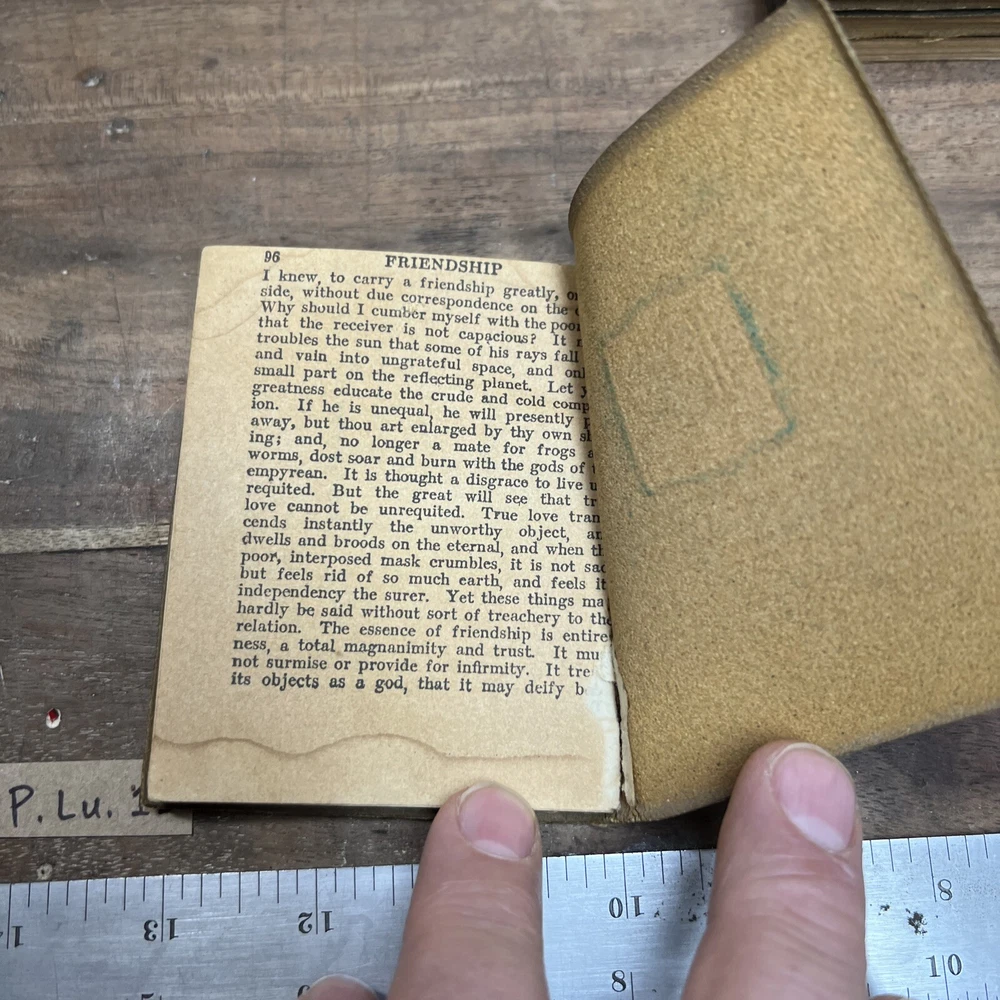 96
FRIENDSHIP
I knew, to carry a friendship greatly,
side, without due correspondence on the
Why should I cumber myself with the
that the receiver is not capacious? It
troubles the sun that some of his rays fall
and vain into ungrateful space, and
small part on the reflecting planet. Let
greatness educate the crude and cold
ion. If he is unequal, he will presently
away, but thou art enlarged by thy own
ing; and, no longer a mate for frogs
worms, dost soar and burn with the gods of
empyrean. It is thought a disgrace to live
requited. But the great will see that
love cannot be unrequited. True love tran
cends instantly the unworthy object,
dwells and broods on the eternal, and when
poor, interposed mask crumbles, it is not
but feels rid of so much earth, and feels
independency the surer. Yet these things
hardly be said without sort of treachery to the
relation. The essence of friendship is entire
ness, a total magnanimity and trust. It
not surmise or provide for infirmity. It
its objects as a god, that it may deify
P. Lu.
13
12
10
8
8
10